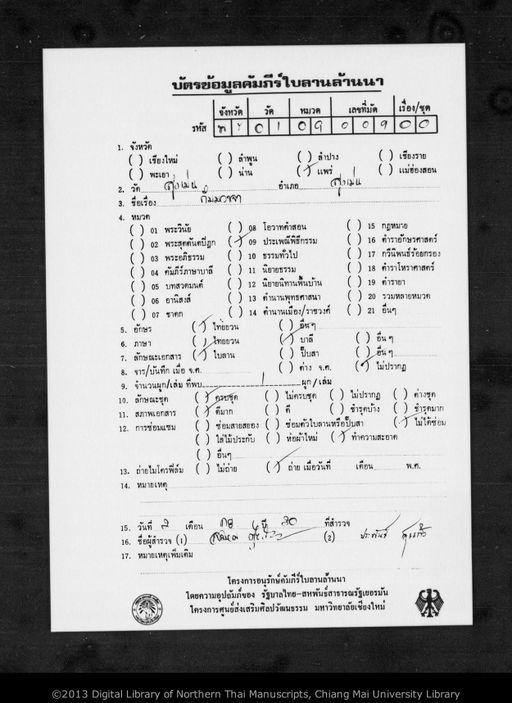 บัตรข้อมูลคัมภีร์ใบลานล้านนา
จังหวัด วัด หมวด เลขที่มัด เรื่อง/ชุด
รหัส 01 09 009 00
1. จังหวัด
( ) เชียงใหม่ ( ) ลำพูน ( ) ลำปาง ( ) เชียงราย
( ) พะเยา ( ) น่าน (/) แพร่ ( ) แม่ฮ่องสอน
2. วัด สูงเม่น อำเภอ สูงเม่น
3. ชื่อเรื่อง กัมมวาจา
4. หมวด
( ) 01 พระวินัย ( ) 08 โอวาทคำสอน ( ) 15 กฎหมาย
( ) 02 พระสุตตันตปิฎก (/) 09 ประเพณีพิธีกรรม ( ) 16 ตำรายักษรศาสตร์
( ) 03 พระอภิธรรม ( ) 10 ธรรมทั่วไป ( ) 17 กวีนิพนธ์ร้อยกรอง
( ) 04 คัมภีร์ภาษาบาลี ( ) 11 นิยายธรรม ( ) 18 ตำราโหราศาสตร์
( ) 05 บทสวดมนต์ ( ) 12 นิยายนิทานพื้นบ้าน ( ) 19 ตำรายา
( ) 06 อานิสงส์ ( ) 13 ตำนานพุทธศาสนา ( ) 20 รวมหลายหมวด
( ) 07 ชาดก ( ) 14 ตำนานเมือง/ราชวงศ์ ( ) 21 อื่นๆ
5. อักษร (/) ไทยยวน ( ) อื่นๆ
6. ภาษา (/) ไทยยวน (/) บาลี ( ) อื่นๆ
7. ลักษณะเอกสาร (/) ใบลาน ( ) ปั๊บสา ( ) อื่นๆ
8. จาร/บันทึก เมื่อ จ.ศ. ( ) ต่าง จ.ศ. (/) ไม่ปรากฏ
9. จำนวนผูก/เล่ม ที่พบ 1 ผูก/เล่ม
10. ลักษณะชุด (/) ครบชุด ( ) ไม่ครบชุด ( ) ไม่ปรากฏ ( ) ต่างชุด
11. สภาพเอกสาร (/) ดีมาก ( ) ดี ( ) ชำรุดบ้าง ( ) ชำรุดมาก
12. การซ่อมแซม ( ) ซ่อมสายสยอง ( ) ซ่อมตัวใบลานหรือปั๊บสา (/) ไม่ได้ซ่อม
( ) ใส่ไม้ประกับ ( ) ห่อผ้าใหม่ (/) ทำความสะอาด
( ) อื่นๆ
13. ถ่ายไมโครฟิล์ม ( ) ไม่ถ่าย (/) ถ่าย เมื่อวันที่ เดือน พ.ศ.
14. หมายเหตุ
15. วันที่ เดือน 30 ที่สำรวจ
16. ชื่อผู้สำรวจ (1) (2)
17. หมายเหตุเพิ่มเติม
โครงการอนุรักษ์คัมภีร์ใบลานล้านนา
โดยความอุปถัมภ์ของ รัฐบาลไทย-สหพันธ์สาธารณรัฐเยอรมัน
โครงการศูนย์ส่งเสริมศิลปวัฒนธรรม มหาวิทยาลัยเชียงใหม่
©2013 Digital Library of Northern Thai Manuscripts, Chiang Mai University Library